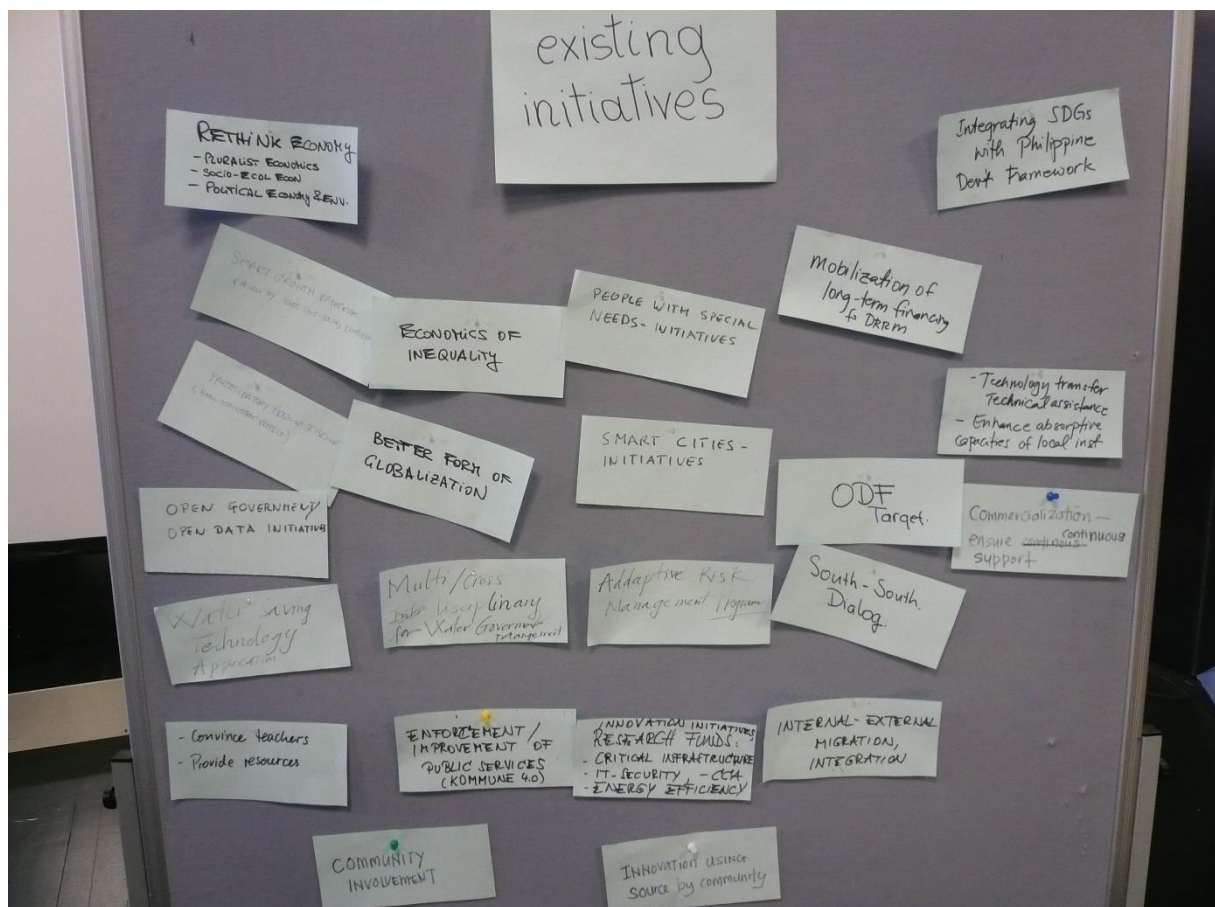 existing
initiatives
RETHINK ECONOMY
- PLURALIST ECONOMICS
- SOCIO-ECOL ECON
- POLITICAL ECONOMY & ENV.
Integrating SDGs
with Philippine
Dev't Framework
SMART GROWTH
ECONOMICS OF
INEQUALITY
PEOPLE WITH SPECIAL
NEEDS - INITIATIVES
Mobilization of
long-term financing
fo DRRM
BETTER FORM OF
GLOBALIZATION
SMART CITIES -
INITIATIVES
- Technology transfer
Technical assistance
- Enhance absorptive
capacities of local inst
OPEN GOVERNMENT/
OPEN DATA INITIATIVES
ODF
Target.
Commercialization -
ensure continuous
support
Water saving
Technology
Multi/Cross
Disciplinary
for Water
Addaptive Risk
Management Program
South-South.
Dialog.
- Convince teachers
- Provide resources
ENFORCEMENT/
IMPROVEMENT OF
PUBLIC SERVICES
(KOMMUNE 4.0)
INNOVATION INITIATIVES,
RESEARCH FUNDS:
- CRITICAL INFRASTRUCTURE
- IT-SECURITY, - CCA
- ENERGY EFFICIENCY
INTERNAL-EXTERNAL
MIGRATION,
INTEGRATION
COMMUNITY
INVOLVEMENT
INNOVATION USING
SOURCE by COMMUNITY